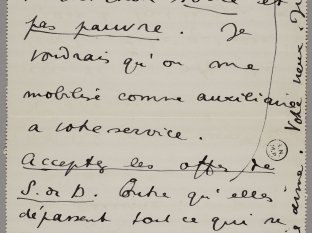 pas pauvre. Je
voudrais qu'on me
mobilise comme auxiliaire
a votre service.
Acceptez les offres de
S. et D. Outre qu'elles
dépassent tout ce qui
Votre neveu.